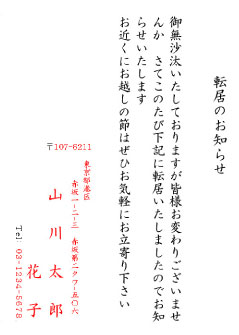 転居のお知らせ
御無沙汰いたしておりますが皆様お変わりございませ
んか　さてこのたび下記に転居いたしましたのでお知
らせいたします
お近くにお越しの節はぜひお気軽にお立寄り下さい
〒107-6211
東京都港区
赤坂一-二-三　赤坂第一タワー五〇六
山川太郎
花子
Tel 03-1234-5678